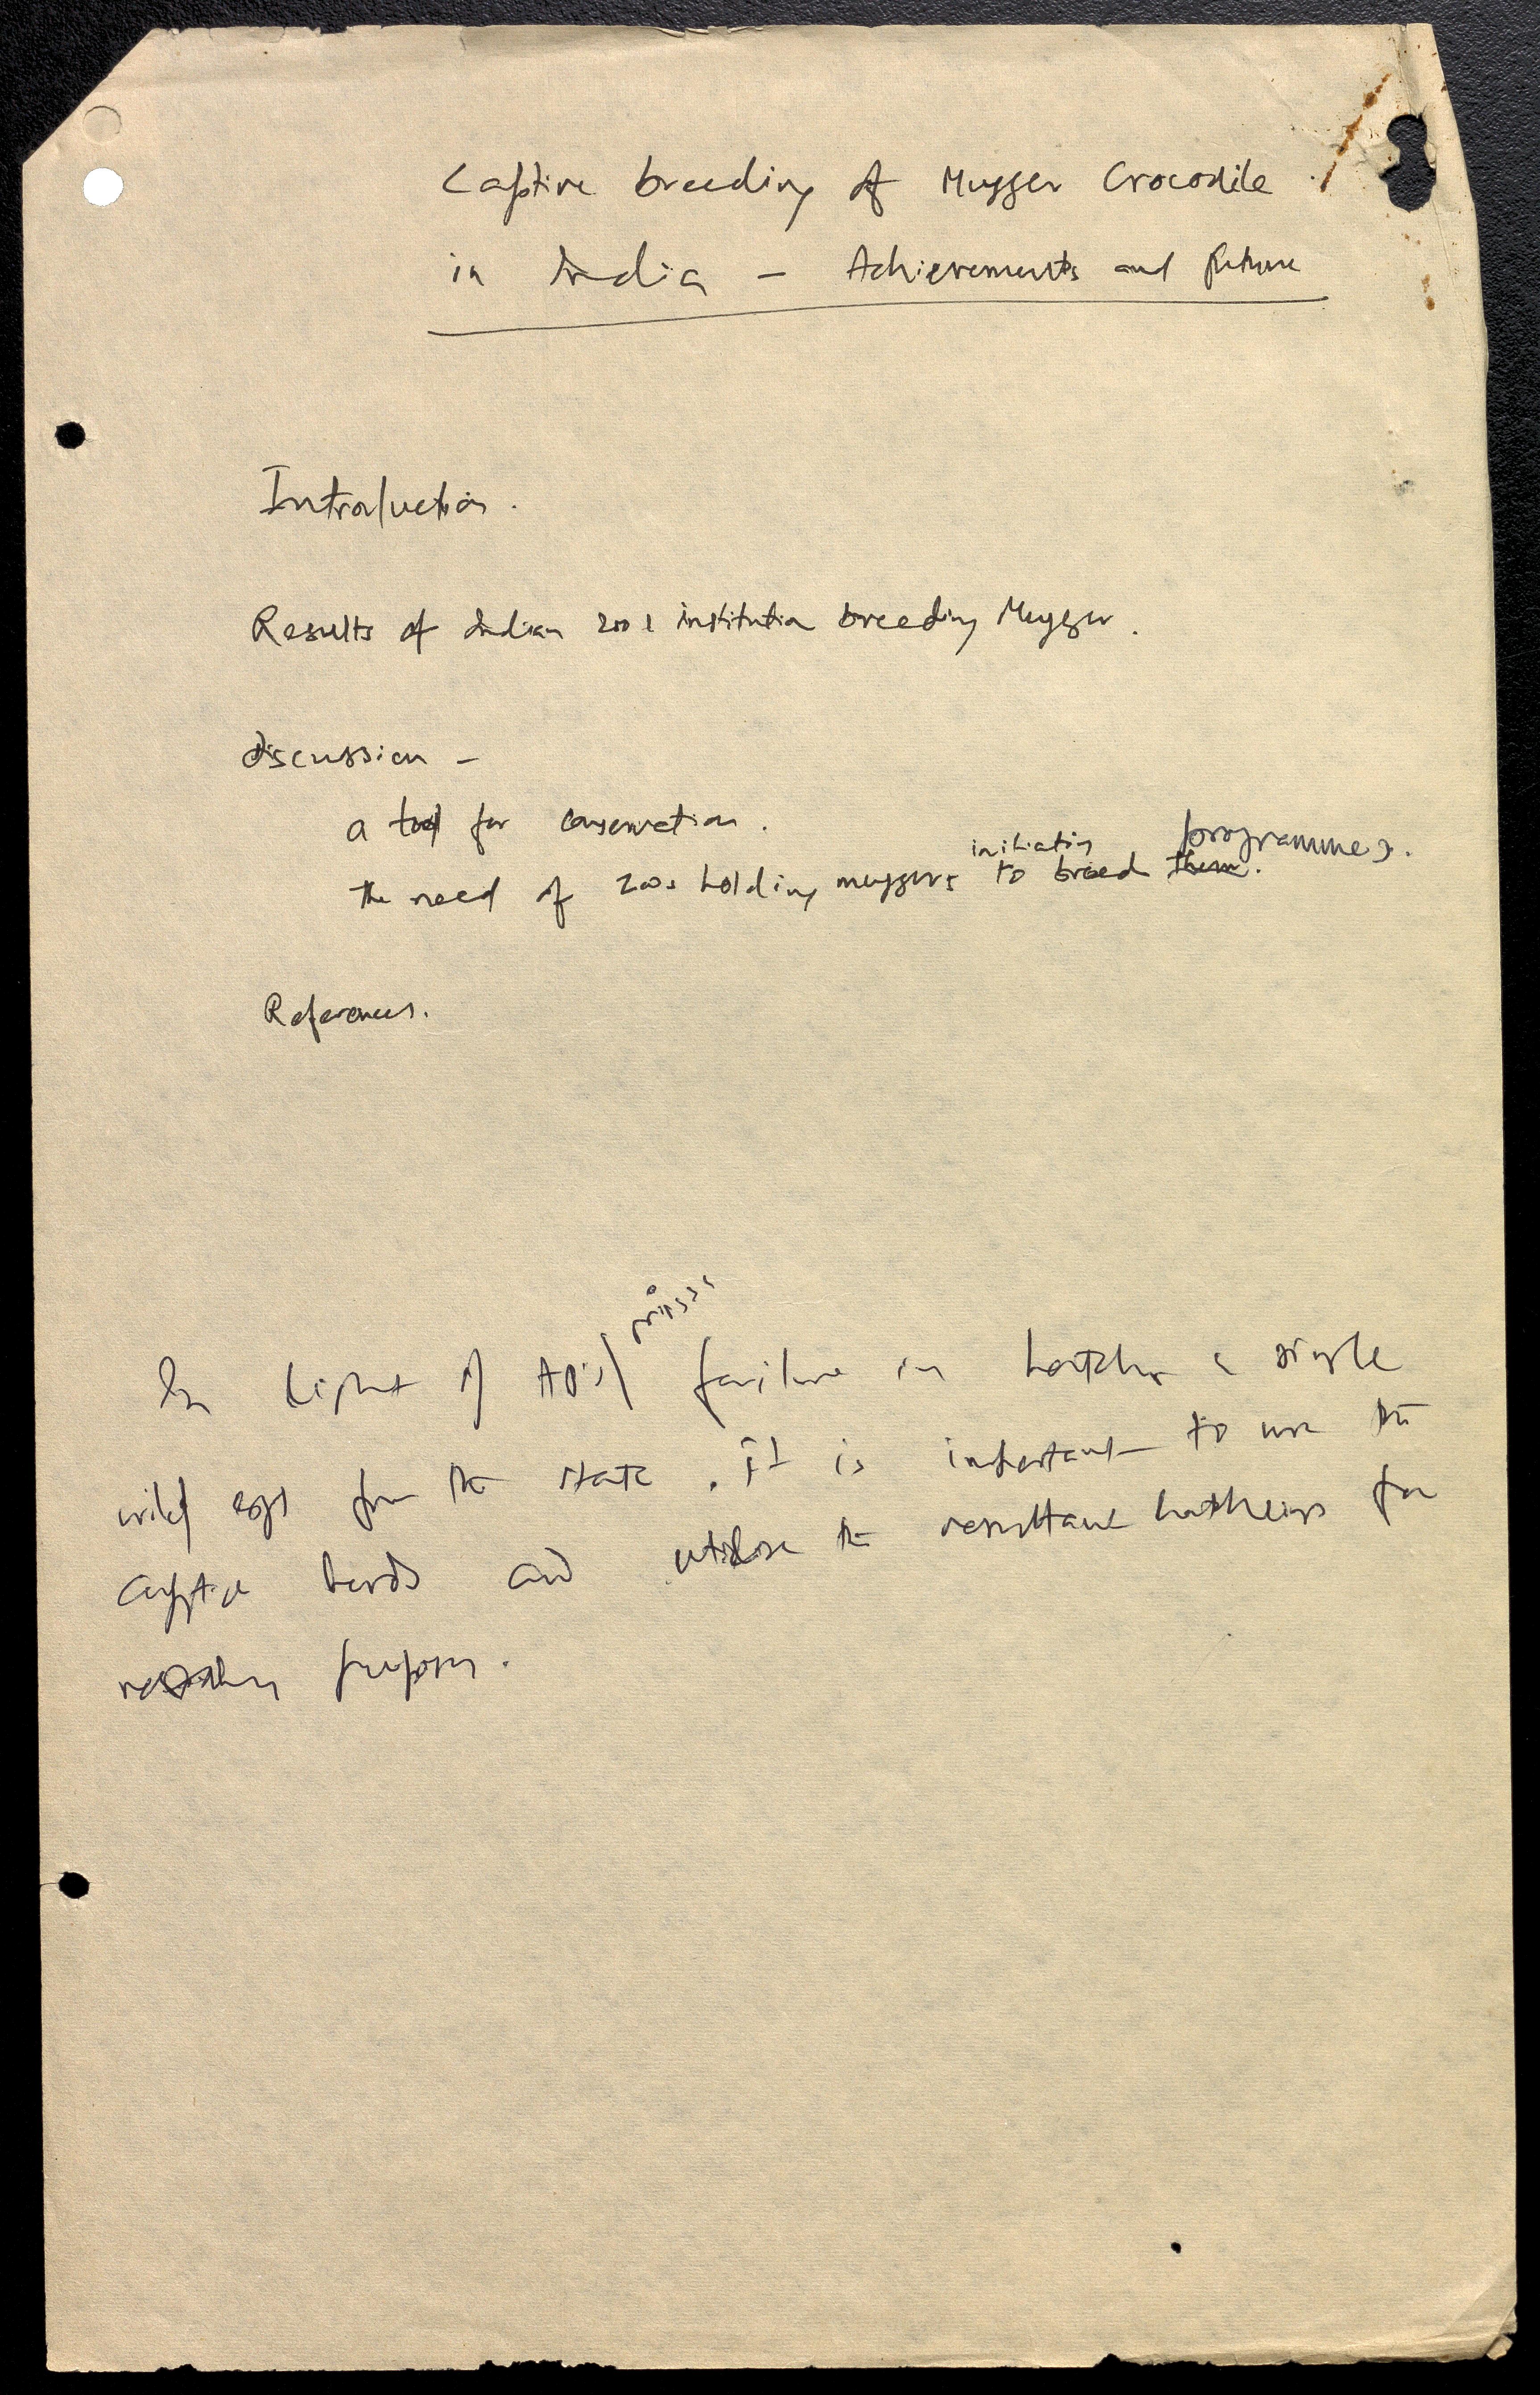 Captive breeding of Mugger Crocodile
in India - Achievements and future
Introduction.
Results of Indian zoo & institution breeding Mugger.
Discussion -
a tool for conservation.
initiating programmes.
the need of zoos holding muggers to breed them.
References.
In light of failure in hatching a single
wild eggs from the state. It is important to use the
captive and utilise the resultant hatchlings for
restocking purposes.